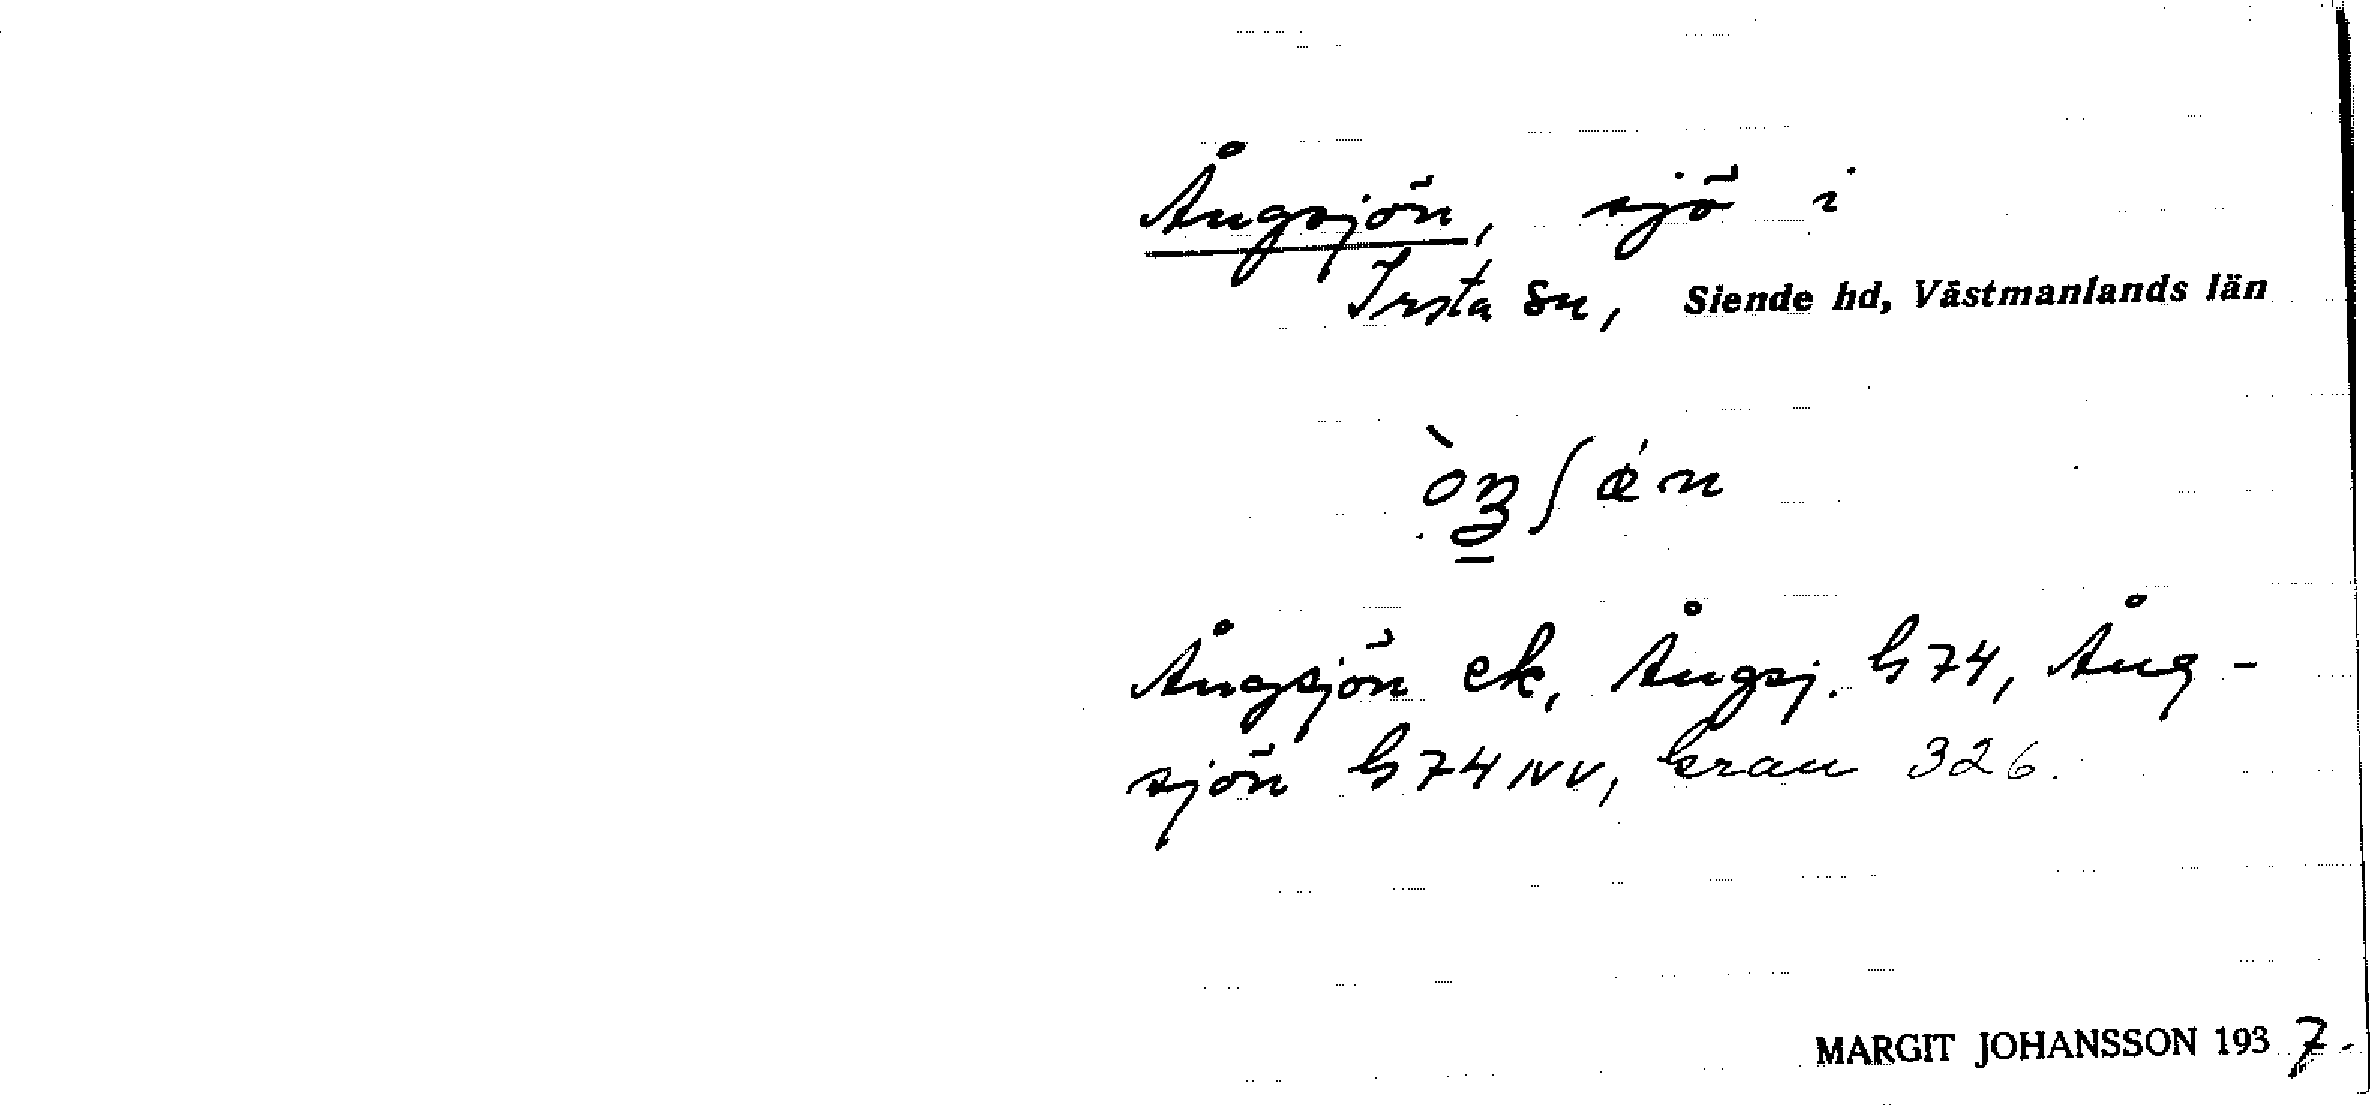 Ångsjön, sjö i
Irsta sn, Siende hd, Västmanlands län
Ångsjön ek, Ångsj. h 74, Ång-
sjön h 74 NV, kran 326.
MARGIT JOHANSSON 1937.